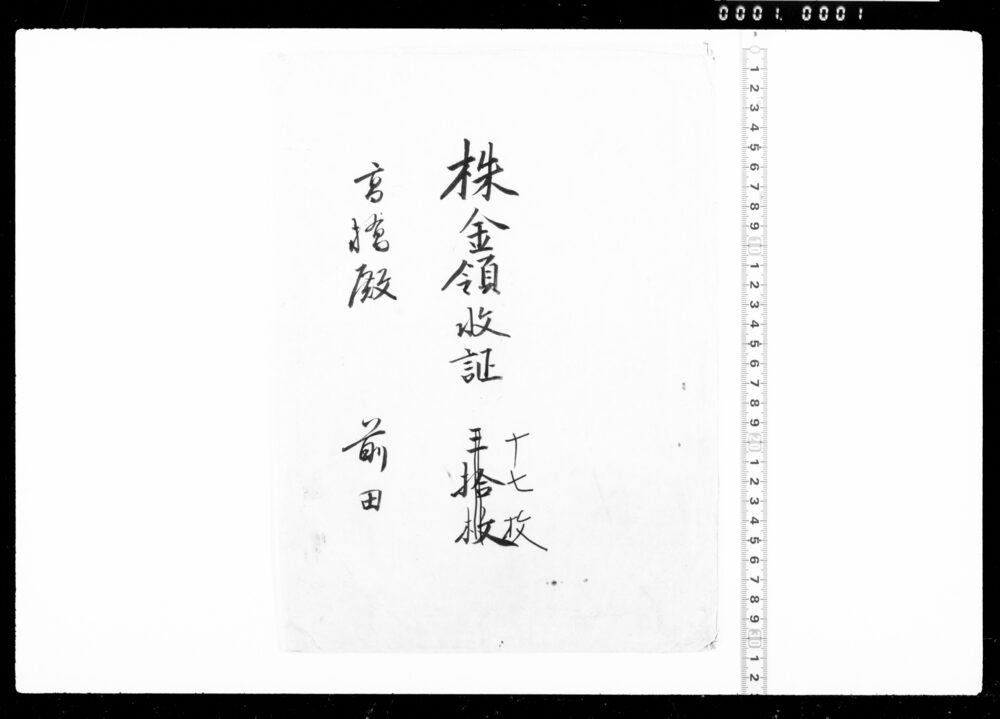 0001. 0001
株金領收証
十七枚
三拾枚
高橋殿
前田
1 2 3 4 5 6 7 8 9 10 1 2 3 4 5 6 7 8 9 20 1 2 3 4 5 6 7 8 9 30 1 2